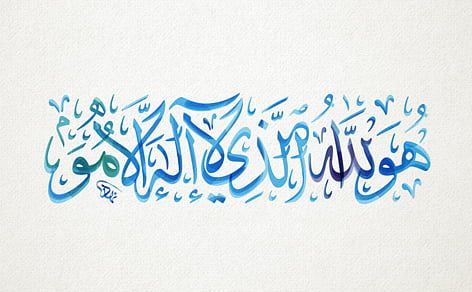 هُوَ اللَّهُ الَّذِي لَا إِلَٰهَ إِلَّا هُوَ